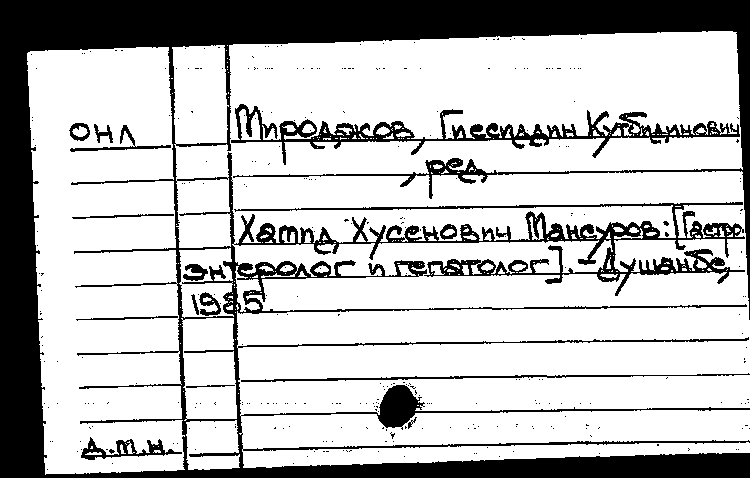 ОНЛ Мироджов, Гиесиддин Кутбидинович
, ред.
Хамид Хусенович Мансуров: [Гастро-
энтеролог и гепатолог]. – Душанбе,
1985.
д.т.н.